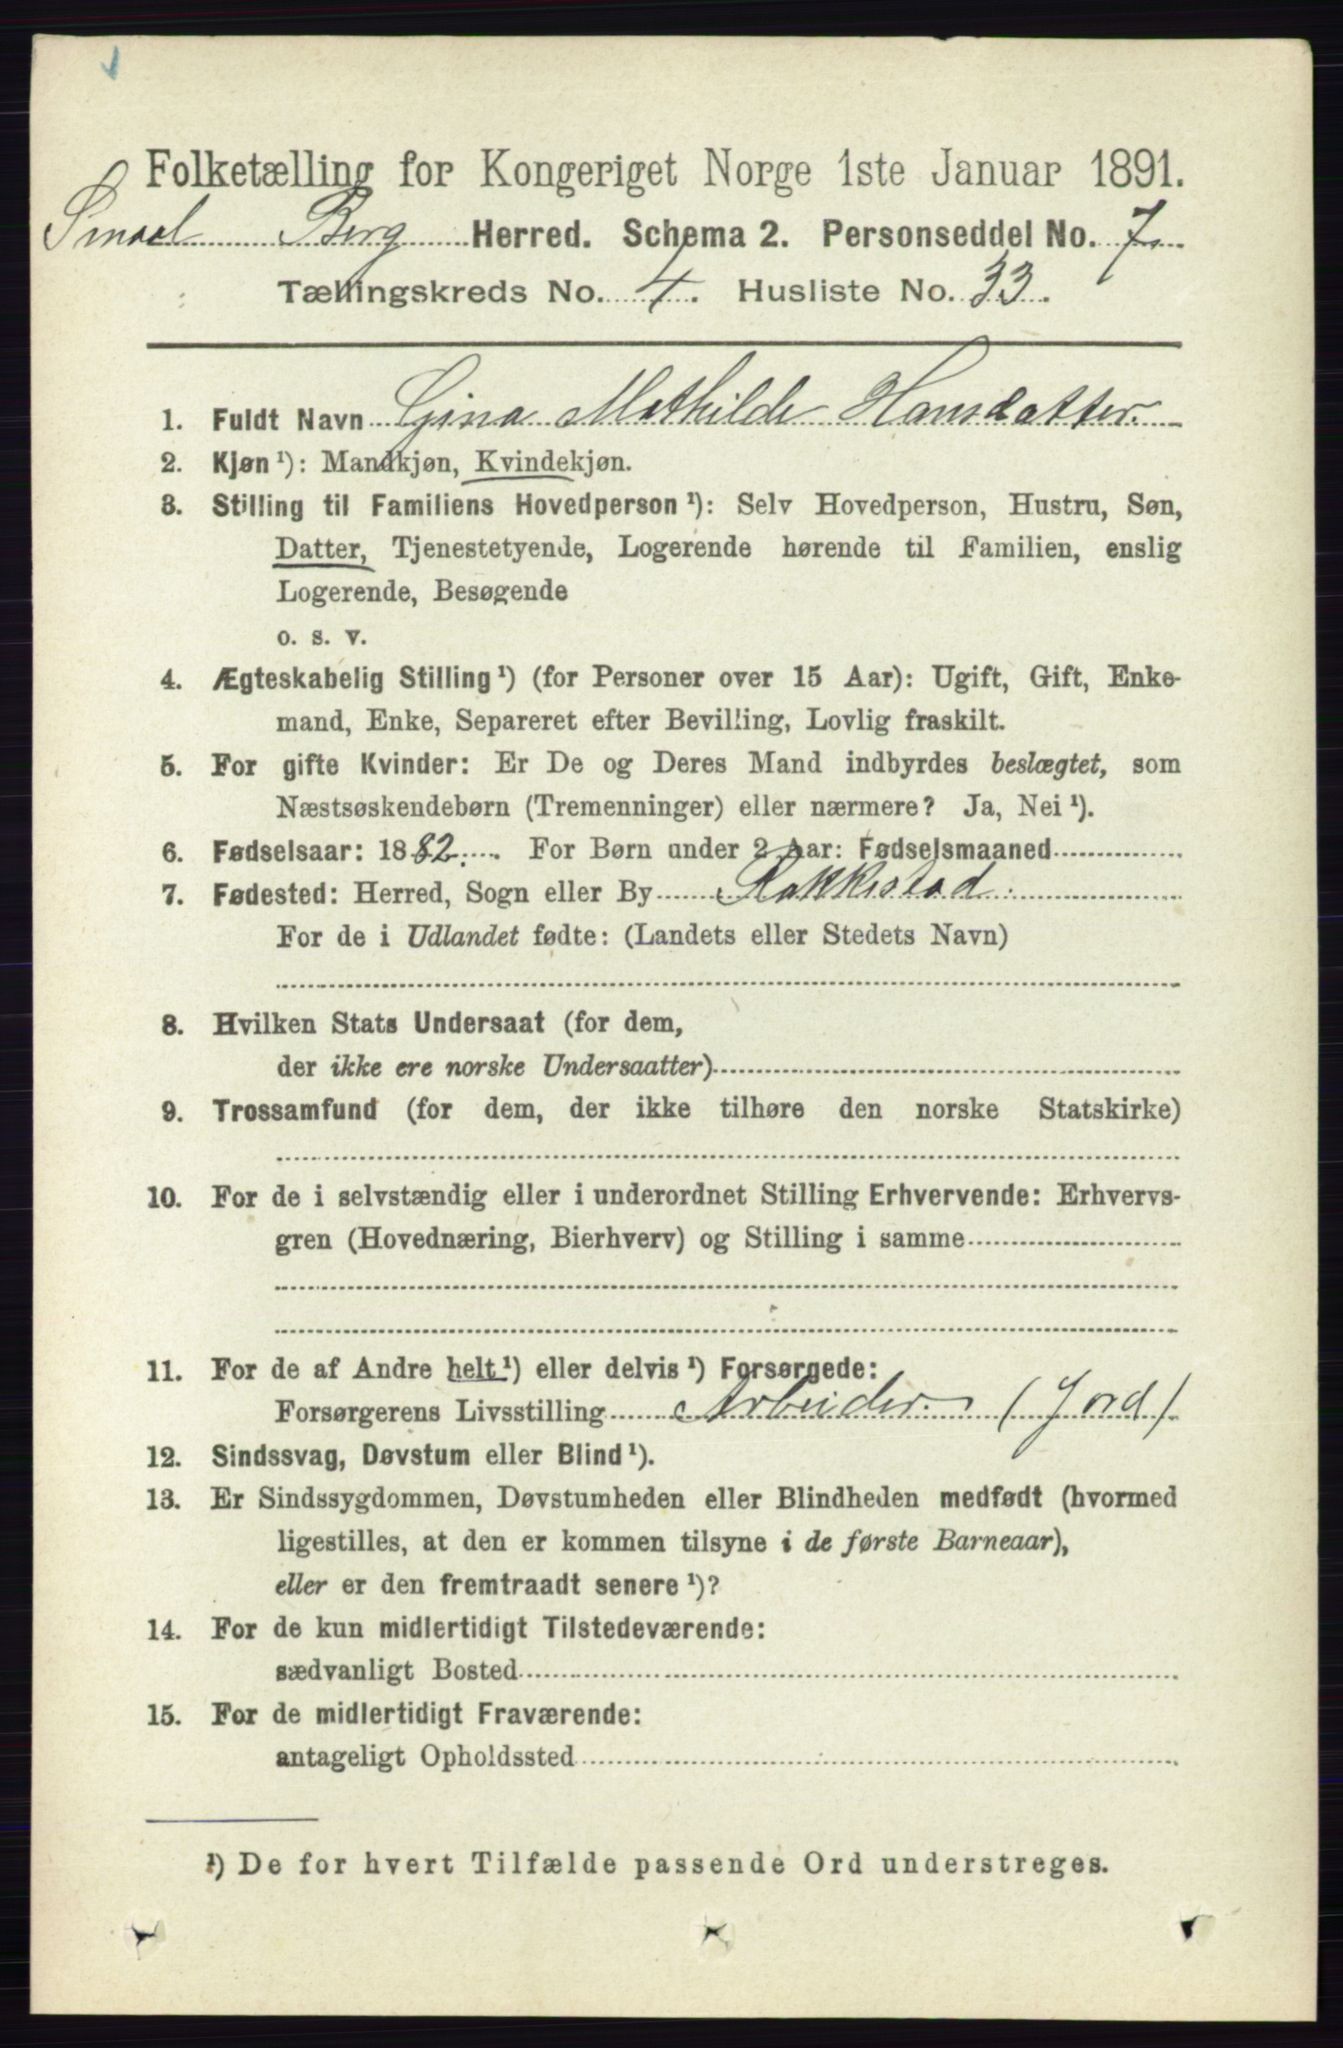 Folketælling for Kongeriget Norge 1ste Januar 1891.
Smaal Berg Herred. Schema 2. Personseddel No. 7
Tællingskreds No. 4. Husliste No. 33.
1. Fuldt Navn Gina Mathilde Hansdatter.
2. Kjøn ¹): Mandkjøn, Kvindekjøn.
3. Stilling til Familiens Hovedperson ¹): Selv Hovedperson, Hustru, Søn,
Datter, Tjenestetyende, Logerende hørende til Familien, enslig
Logerende, Besøgende
o. s. v.
4. Ægteskabelig Stilling ¹) (for Personer over 15 Aar): Ugift, Gift, Enke-
mand, Enke, Separeret efter Bevilling, Lovlig fraskilt.
5. For gifte Kvinder: Er De og Deres Mand indbyrdes beslægtet, som
Næstsøskendebørn (Tremenninger) eller nærmere? Ja, Nei ¹).
6. Fødselsaar: 1882. For Børn under 2 Aar: Fødselsmaaned
7. Fødested: Herred, Sogn eller By Rakkestad.
For de i Udlandet fødte: (Landets eller Stedets Navn)
8. Hvilken Stats Undersaat (for dem,
der ikke ere norske Undersaatter)
9. Trossamfund (for dem, der ikke tilhøre den norske Statskirke)
10. For de i selvstændig eller i underordnet Stilling Erhvervende: Erhvervs-
gren (Hovednæring, Bierhverv) og Stilling i samme
11. For de af Andre helt ¹) eller delvis ¹) Forsørgede:
Forsørgerens Livsstilling Arbeider. (Jord)
12. Sindssvag, Døvstum eller Blind ¹).
13. Er Sindssygdommen, Døvstumheden eller Blindheden medfødt (hvormed
ligestilles, at den er kommen tilsyne i de første Barneaar),
eller er den fremtraadt senere ¹)?
14. For de kun midlertidigt Tilstedeværende:
sædvanligt Bosted
15. For de midlertidigt Fraværende:
antageligt Opholdssted
¹) De for hvert Tilfælde passende Ord understreges.